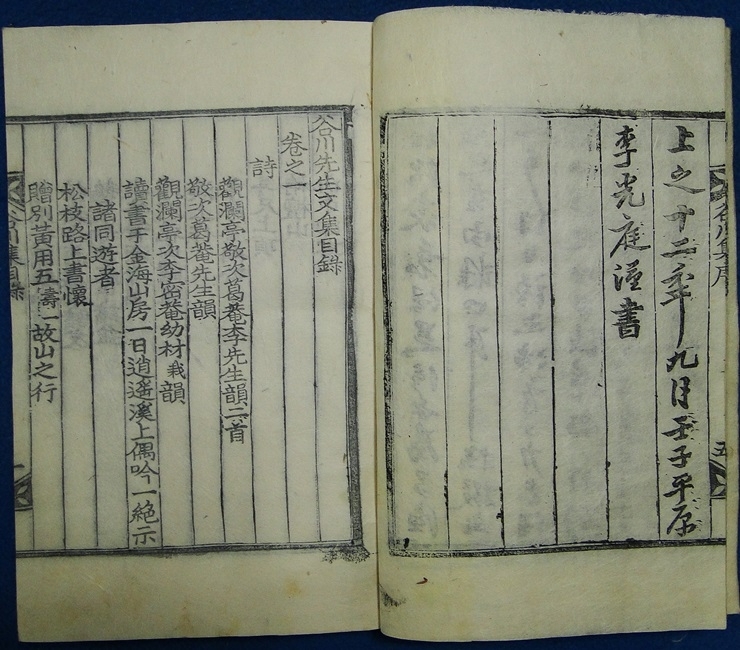 谷川集序
五
上之十二年九月壬子平原
李光庭謹書
谷川先生文集目錄
卷之一
詩
觀瀾亭敬次葛菴李先生韻二首
敬次葛菴先生韻
觀瀾亭次李密菴幼材栽韻
讀書于金海山房一日逍遙溪上偶吟一絶示
諸同遊者
松枝路上書懷
贈別黃用五濤一故山之行
谷川集目錄
一